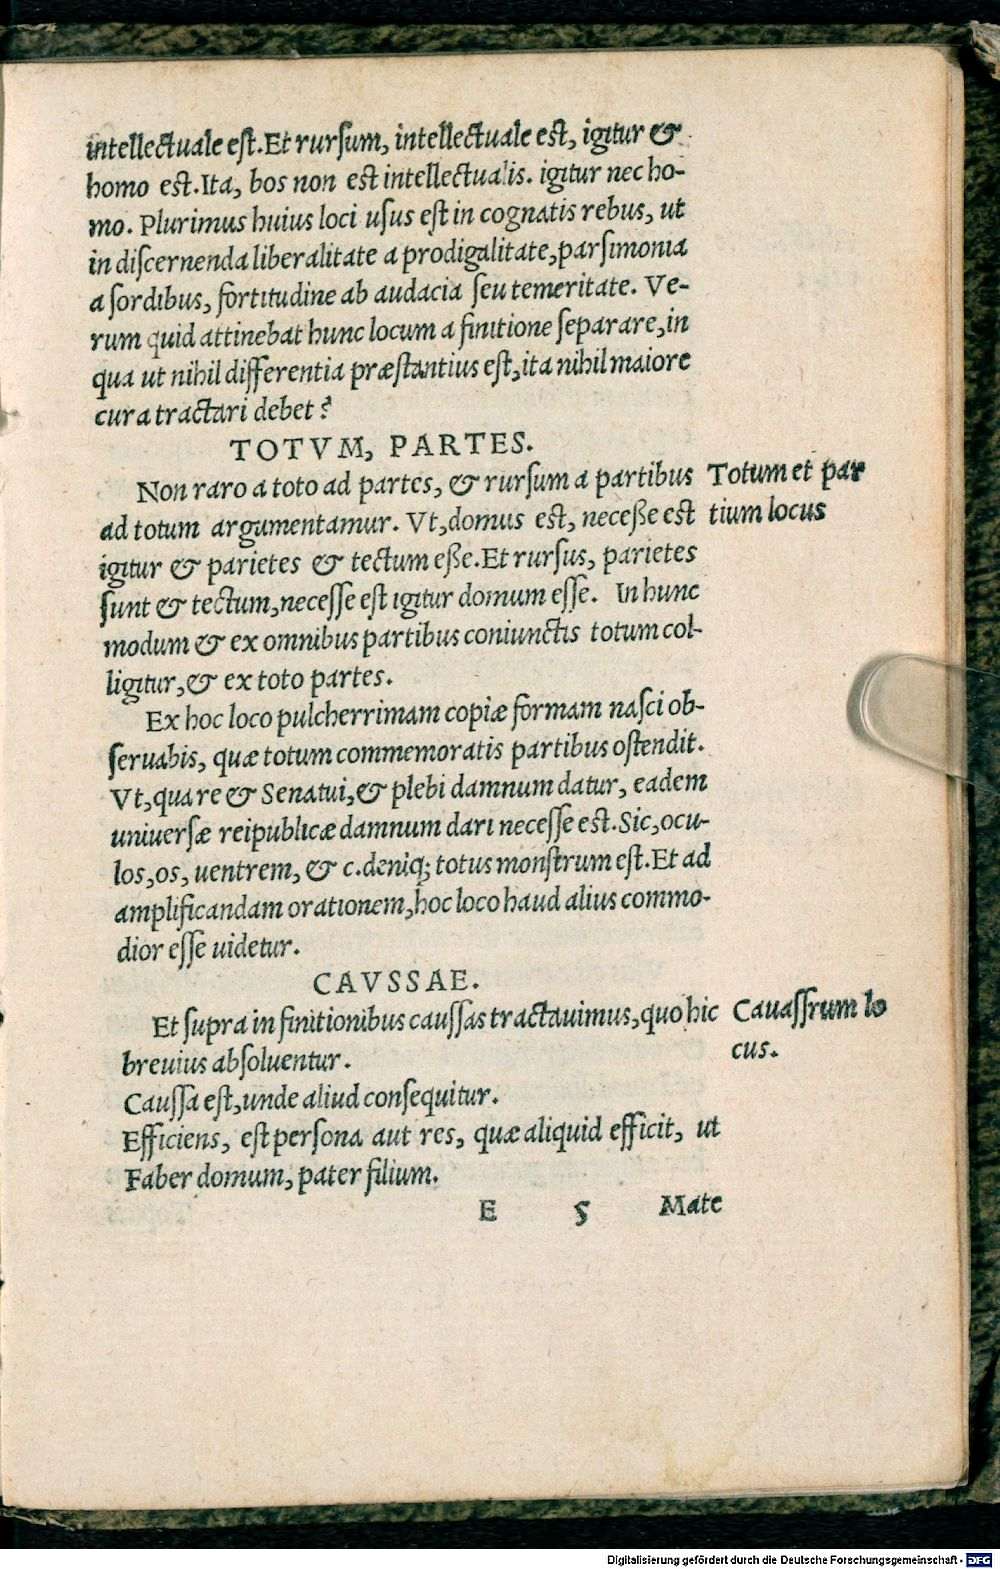 intellectuale est. Et rursum, intellectuale est, igitur &
homo est. Ita, bos non est intellectualis. igitur nec ho-
mo. Plurimus huius loci usus est in cognatis rebus, ut
in discernenda liberalitate a prodigalitate, parsimonia
a sordibus, fortitudine ab audacia seu temeritate. Ve-
rum quid attinebat hunc locum a finitione separare, in
qua ut nihil differentia præstantius est, ita nihil maiore
cura tractari debet?
TOTVM, PARTES.
Non raro a toto ad partes, & rursum a partibus Totum et par
ad totum argumentamur. Vt, domus est, necesse est tium locus
igitur & parietes & tectum esse. Et rursus, parietes
sunt & tectum, necesse est igitur domum esse. In hunc
modum & ex omnibus partibus coniunctis totum col-
ligitur, & ex toto partes.
Ex hoc loco pulcherrimam copiæ formam nasci ob-
seruabis, quæ totum commemoratis partibus ostendit.
Vt, qua re & Senatui, & plebi damnum datur, eadem
uniuersæ reipublicæ damnum dari necesse est. Sic, ocu-
los, os, uentrem, & c. deniq; totus monstrum est. Et ad
amplificandam orationem, hoc loco haud alius commo-
dior esse uidetur.
CAVSSAE.
Et supra in finitionibus caussas tractauimus, quo hic Cauassrum lo
breuius absoluentur. cus.
Caussa est, unde aliud consequitur.
Efficiens, est persona aut res, quæ aliquid efficit, ut
Faber domum, pater filium.
E 5 Mate
Digitalisierung gefördert durch die Deutsche Forschungsgemeinschaft - DFG